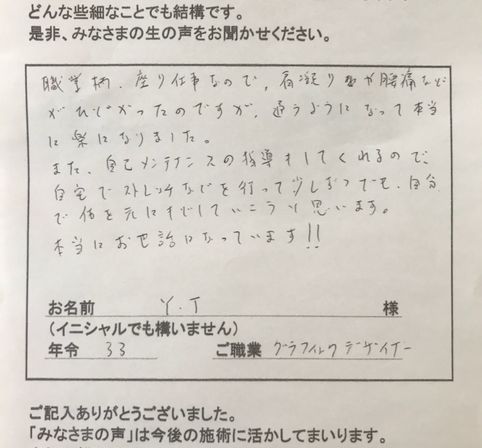 どんな些細なことでも結構です。
是非、みなさまの生の声をお聞かせください。
職業柄、座り仕事なので、肩凝りや腰痛など
がひどかったのですが、通うようになって本当
に楽になりました。
また、自己メンテナンスの指導もしてくれるので、
自宅でストレッチなどを行って少しずつでも、自分
で体を元にもどしていこうと思います。
本当にお世話になっています!!
お名前 Y.T 様
(イニシャルでも構いません)
年令 33 ご職業 グラフィックデザイナー
ご記入ありがとうございました。
「みなさまの声」は今後の施術に活かしてまいります。